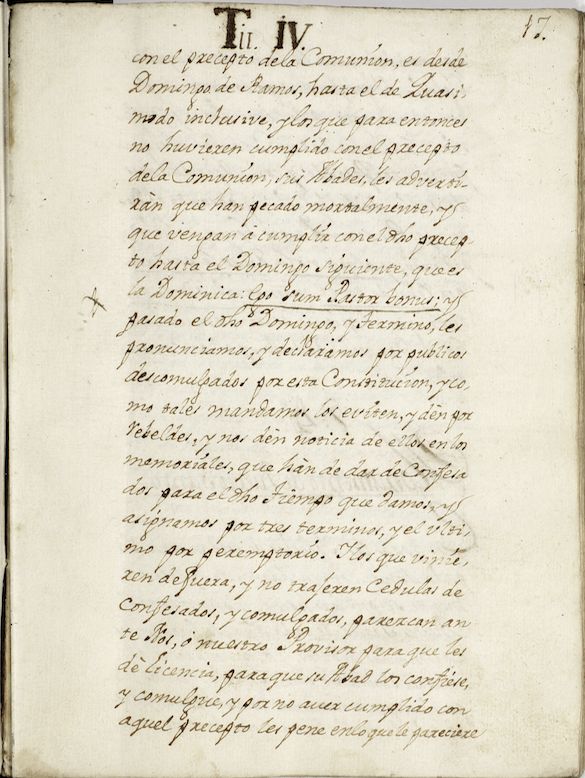 Tit. IV.
17.
con el precepto de la Comunion, es desde
Domingo de Ramos, hasta el de Quasi,
modo inclusive, y los que para entonces
no huvieren cumplido con el precepto
de la Comunion, sus Abades, les adverti-
ràn que han pecado mortalmente, y
que vengan à cumplir con el dho precep-
to hasta el Domingo siguiente, que es
la Dominica: Ego sum Pastor bonus; y
pasado el dho Domingo, y termino, les
pronunciamos, y declaramos por publicos
descomulgados por esta Constitucion, y co,
mo tales mandamos los eviten, y dèn por
rebeldes, y nos dèn noticia de ellos en los
memoriales, que hàn de dar de Confesa
dos para el dho tiempo que damos, y
asignamos por tres terminos, y el ulti,
mo por peremptorio. Ylos que vinie,
ren de fuera, y no trageren Cedulas de
Confesados, y comulgados, parezcan an-
te Nos, ò nuestro Provisor para que les
dè licencia, para que su Abad los confiese,
y comulgue, y por no aver cumplido con
aquel precepto les pene en lo que le pareciere